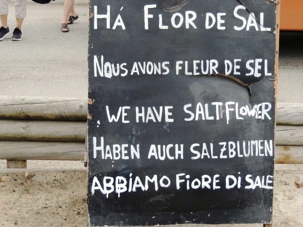 HÁ FLOR DE SAL
NOUS AVONS FLEUR DE SEL
WE HAVE SALTFLOWER
HABEN AUCH SALZBLUMEN
ABBÍAMO FIORE DI SALE